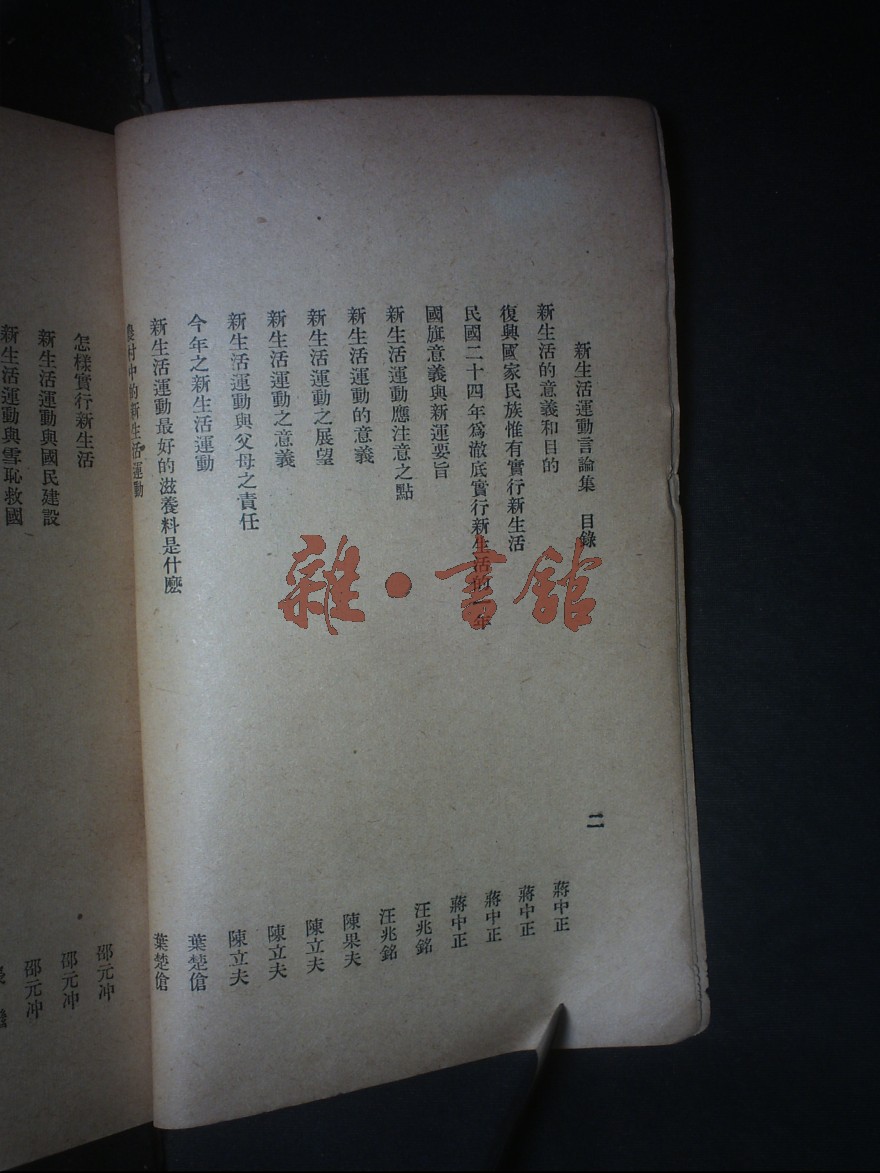 新生活運動言論集　目錄　二
新生活的意義和目的　蔣中正
復興國家民族惟有實行新生活　蔣中正
民國二十四年爲澈底實行新生活的一年　蔣中正
國旗意義與新運要旨　蔣中正
新生活運動應注意之點　汪兆銘
新生活運動的意義　汪兆銘
新生活運動之展望　陳果夫
新生活運動之意義　陳立夫
新生活運動與父母之責任　陳立夫
今年之新生活運動　陳立夫
新生活運動最好的滋養料是什麽　葉楚傖
農村中的新生活運動　葉楚傖
怎樣實行新生活　邵元冲
新生活運動與國民建設　邵元冲
新生活運動與雪恥救國　邵元冲
雜·書館